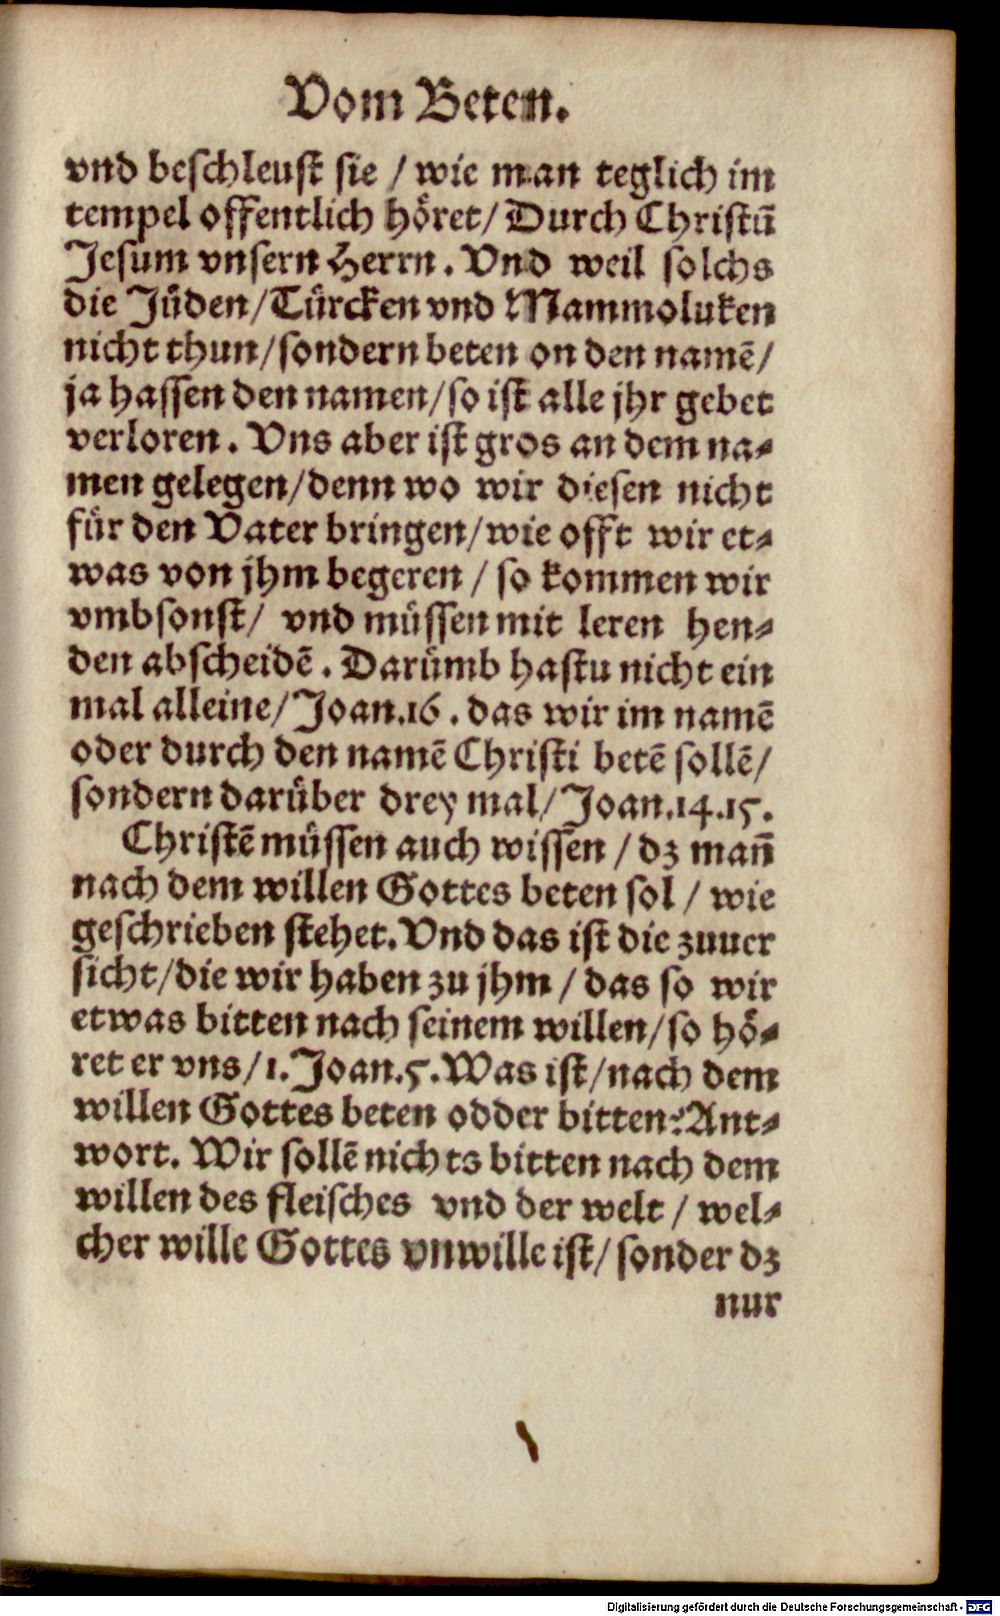 Vom Beten.
vnd beschleust sie / wie man teglich im
tempel offentlich höret/ Durch Christū
Jesum vnsern Herrn. Vnd weil solchs
die Jüden/Türcken vnd Mammoluken
nicht thun/sondern beten on den namē/
ja hassen den namen/so ist alle jhr gebet
verloren. Vns aber ist gros an dem na-
men gelegen/denn wo wir diesen nicht
für den Vater bringen/wie offt wir et-
was von jhm begeren / so kommen wir
vmbsonst/ vnd müssen mit leren hen-
den abscheidē. Darümb hastu nicht ein
mal alleine/Joan.16. das wir im namē
oder durch den namē Christi betē sollē/
sondern darüber drey mal/Joan.14.15.
Christē müssen auch wissen / dz mañ
nach dem willen Gottes beten sol / wie
geschrieben stehet. Vnd das ist die zuuer
sicht/die wir haben zu jhm / das so wir
etwas bitten nach seinem willen/so hö-
ret er vns/1. Joan.5. Was ist/nach dem
willen Gottes beten odder bitten? Ant-
wort. Wir sollē nichts bitten nach dem
willen des fleisches vnd der welt / wel-
cher wille Gottes vnwille ist/sonder dz
nur
Digitalisierung gefördert durch die Deutsche Forschungsgemeinschaft - DFG